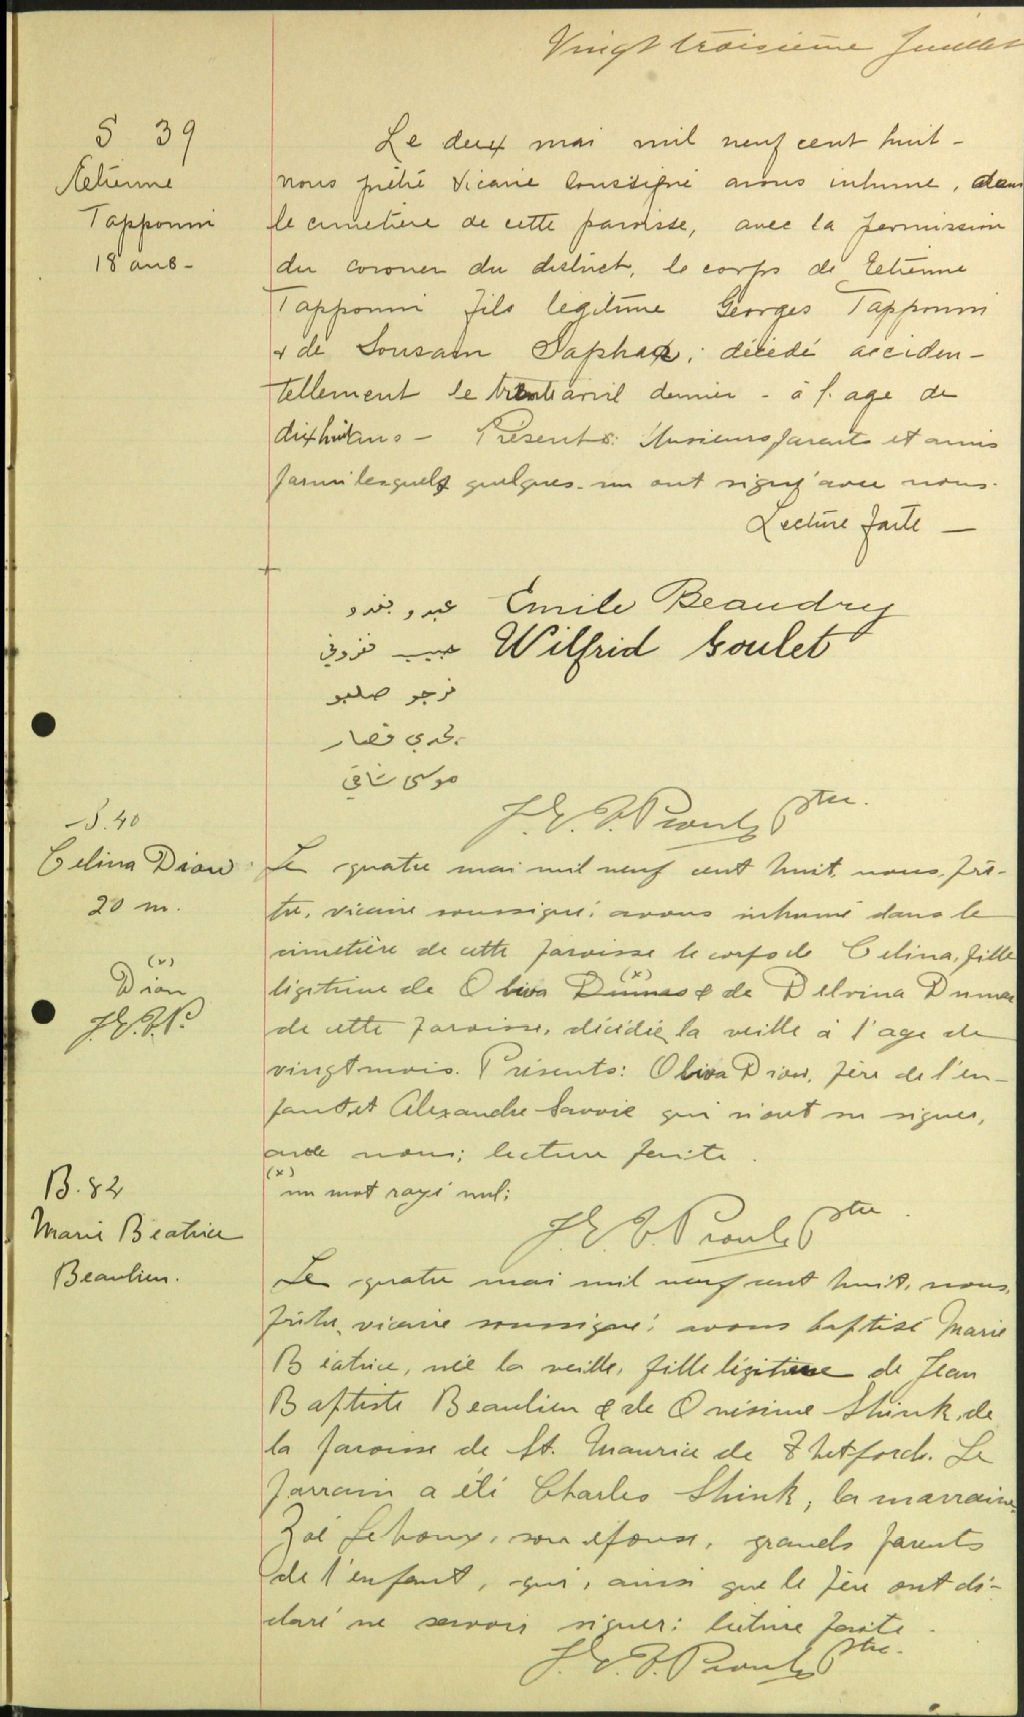 Vingt troisième feuillet
S 39
Etiénne
Tapponni
18 ans-
Le deux mai mil neuf cent huit-
nous prêtre vicaire soussigné avons inhumé, dans
le cimetière de cette paroisse, avec la permission
du coroner du district, le corps de Etiénne
Tapponni fils légitime Georges Tapponni
& de Sousam Saphar; décédé acciden-
tellement le trente avril dernier - à l'age de
dixhuit ans - Présents: plusieurs parents et amis
parmi lesquels quelques-un ont signé avec nous.
Lecture faite -
عبدو بغدو Emile Beaudry
حبيب Wilfrid Goulet
فرجو صلبو
قصار
موسى
J. E. V. Proulx Ptre.
S. 40
Celina Dion
20 m.
Le quatre mai mil neuf cent huit, nous, prê-
tre, vicaire soussigné; avons inhumé dans le
cimetière de cette paroisse le corps de Celina, fille
légitime de Oliva Dumas (x) & de Delvina Dumas
(x)
Dion
J.E.V.P.
de cette paroisse, décédée la veille à l'age de
vingt mois. Présents: Oliva Dion, père de l'en-
fant et Alexandre Savoie qui n'ont su signer,
avec nous; lecture faite.
(x) un mot rayé nul:
J. E. V. Proulx Ptre.
B. 82
Marie Béatrice
Beaulieu.
Le quatre mai mil neuf cent huit, nous,
prêtre, vicaire soussigné; avons baptisé Marie
Béatrice, née la veille, fille légitime de Jean
Baptiste Beaulieu & de Onésime Shink, de
la paroisse de St. Maurice de Thetford. Le
parrain a été Charles Shink, la marraine,
Zoé Leboux, son épouse, grands parents
de l'enfant, qui, ainsi que le père ont dé-
claré ne savoir signer: lecture faite.
J. E. V. Proulx Ptre.